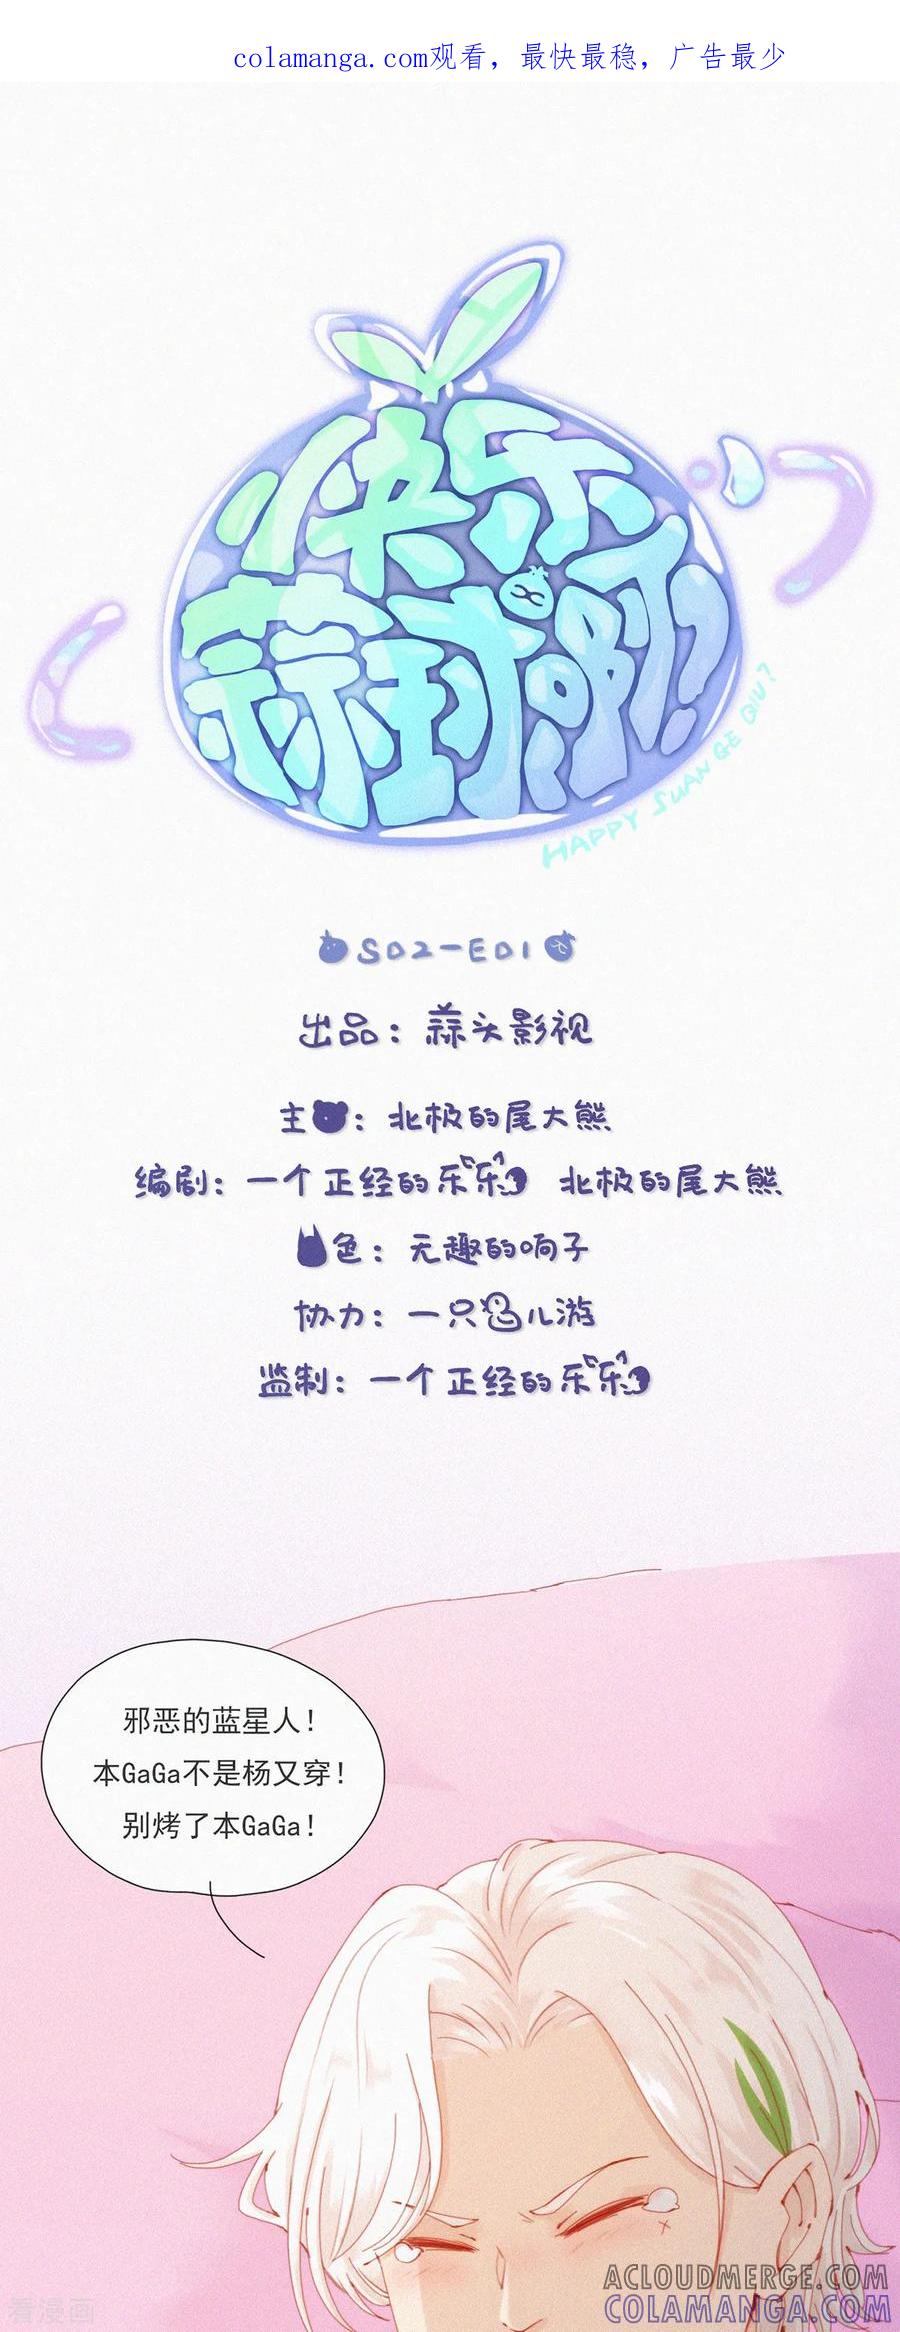 colamanga.com观看，最快最稳，广告最少
快乐
蒜球啊!
HAPPY SUAN GE QIU?
S02-E01
出品：蒜头影视
主：北极的尾大熊
编剧：一个正经的乐乐 北极的尾大熊
色：无趣的响子
协力：一只鸟儿游
监制：一个正经的乐乐
邪恶的蓝星人！
本GaGa不是杨又穿！
别烤了本GaGa！
看漫画
ACLOUDMERGE.COM
COLAMANGA.COM